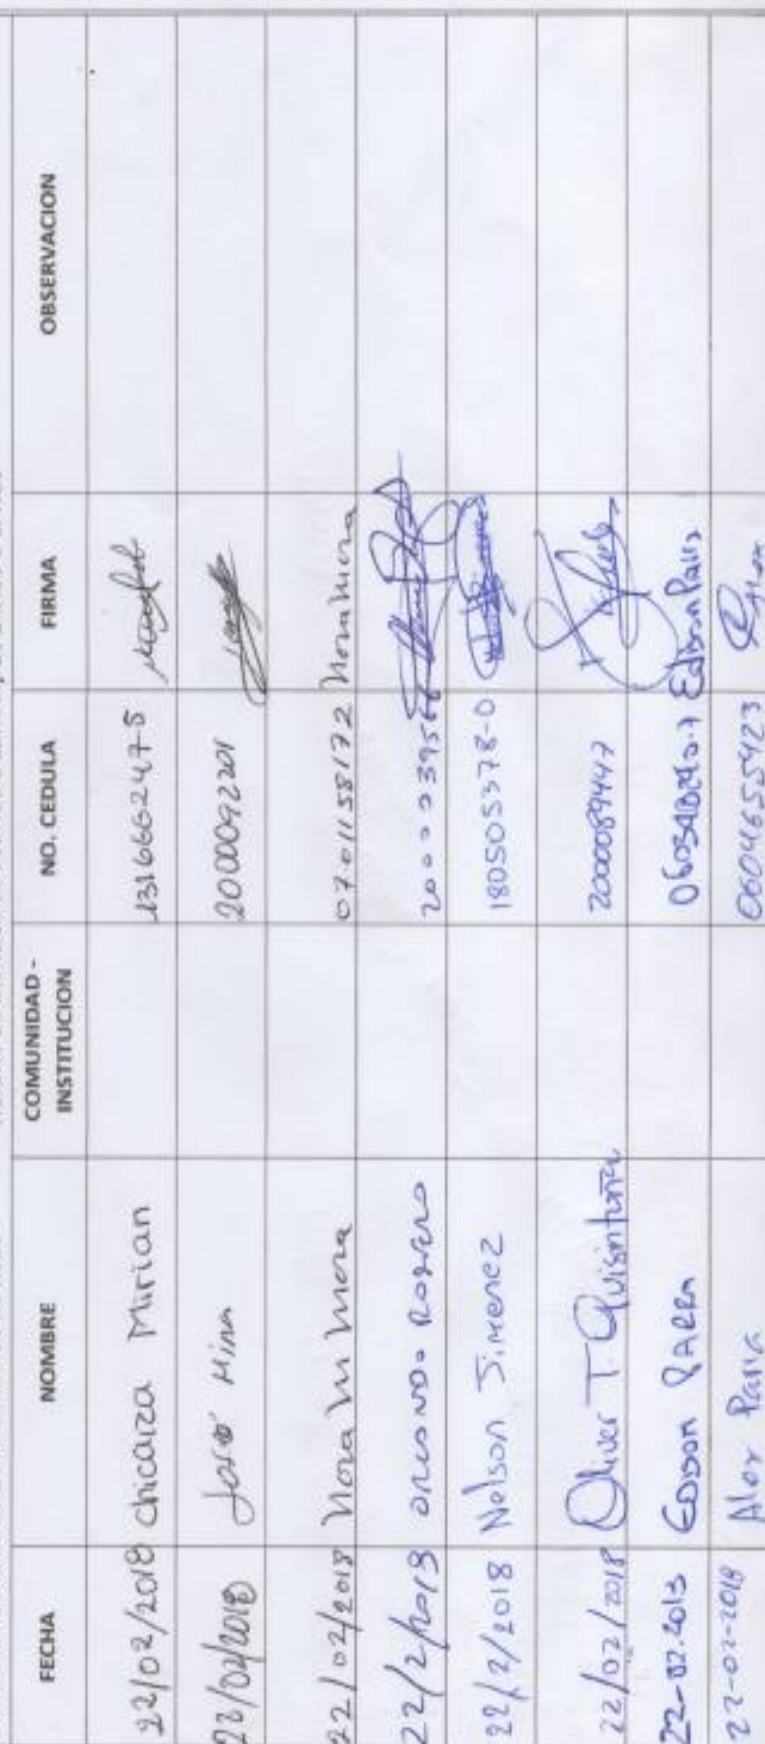 FECHA NOMBRE COMUNIDAD - INSTITUCION NO. CEDULA FIRMA OBSERVACION
22/02/2018 Chicaiza Mirian 131666247-5
22/02/2018 José Mina 2000092201
22/02/2018 Nora M Mora 0701158172 Nora Mora
22/2/2018 ORLANDO ROMERO
22/2/2018 Nelson Jimenez 180505378-0
22/02/2018 Oliver T. Quisintuña 2000089447
22-02-2018 EDISON PARRA Edison Parra
22-02-2018 Alex Parra 0604655423 Alex